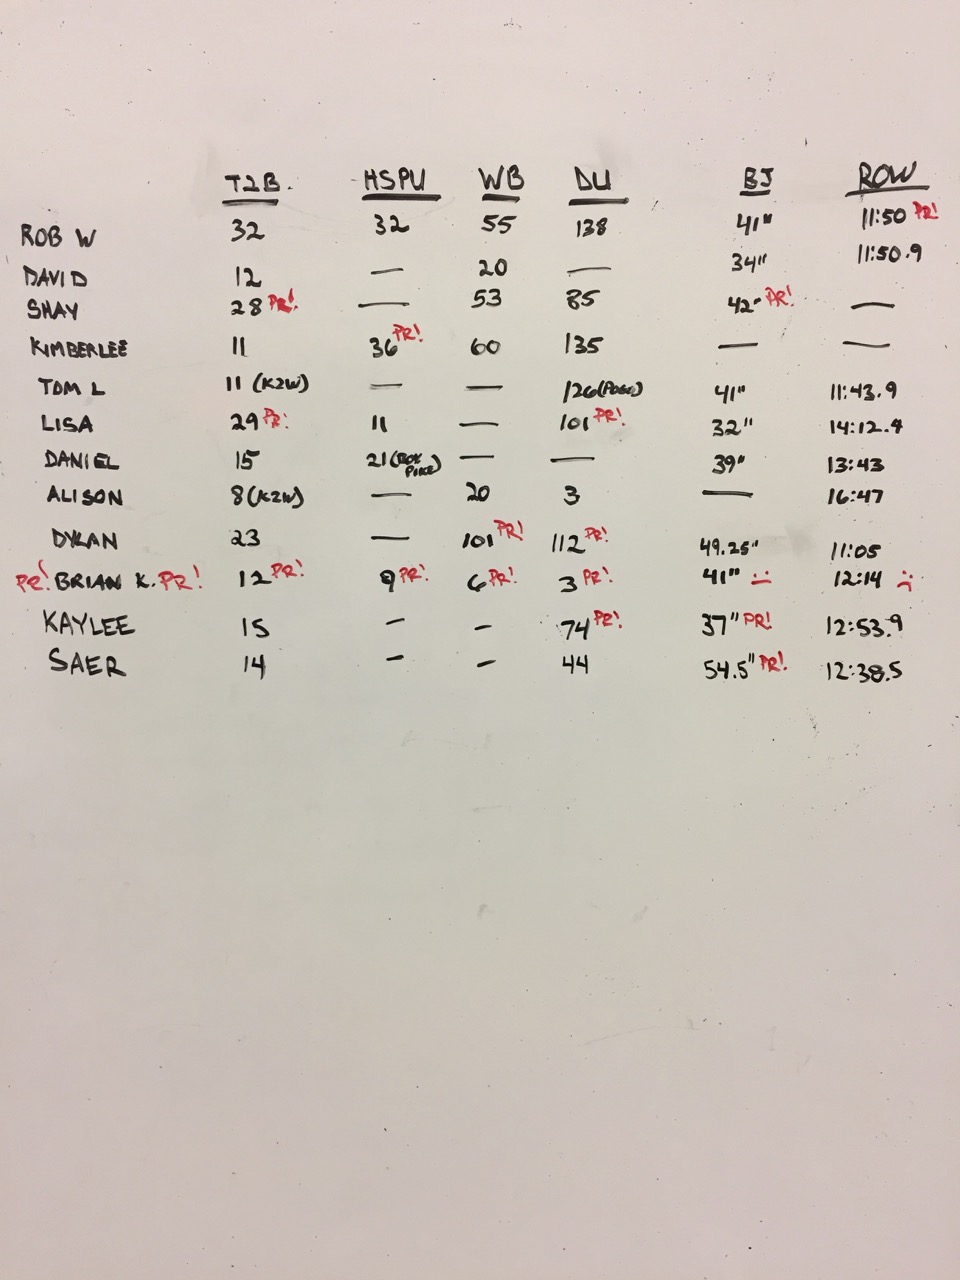 T2B. HSPU WB DU BJ ROW
ROB W 32 32 55 138 41" 11:50 PR!
DAVID 12 — 20 — 34" 11:50.9
SHAY 28 PR! — 53 85 42" PR! —
KIMBERLEE 11 36 PR! 60 135 — —
TOM L 11 (K2W) — — 126 (POGO) 41" 11:43.9
LISA 29 PR! 11 — 101 PR! 32" 14:12.4
DANIEL 15 21 (BOX PIKE) — — 39" 13:43
ALISON 8 (K2W) — 20 3 — 16:47
DYLAN 23 — 101 PR! 112 PR! 49.25" 11:05
PR! BRIAN K. PR! 12 PR! 9 PR! 6 PR! 3 PR! 41" 12:14
KAYLEE 15 - - 74 PR! 37" PR! 12:53.9
SAER 14 - - 44 54.5" PR! 12:38.5